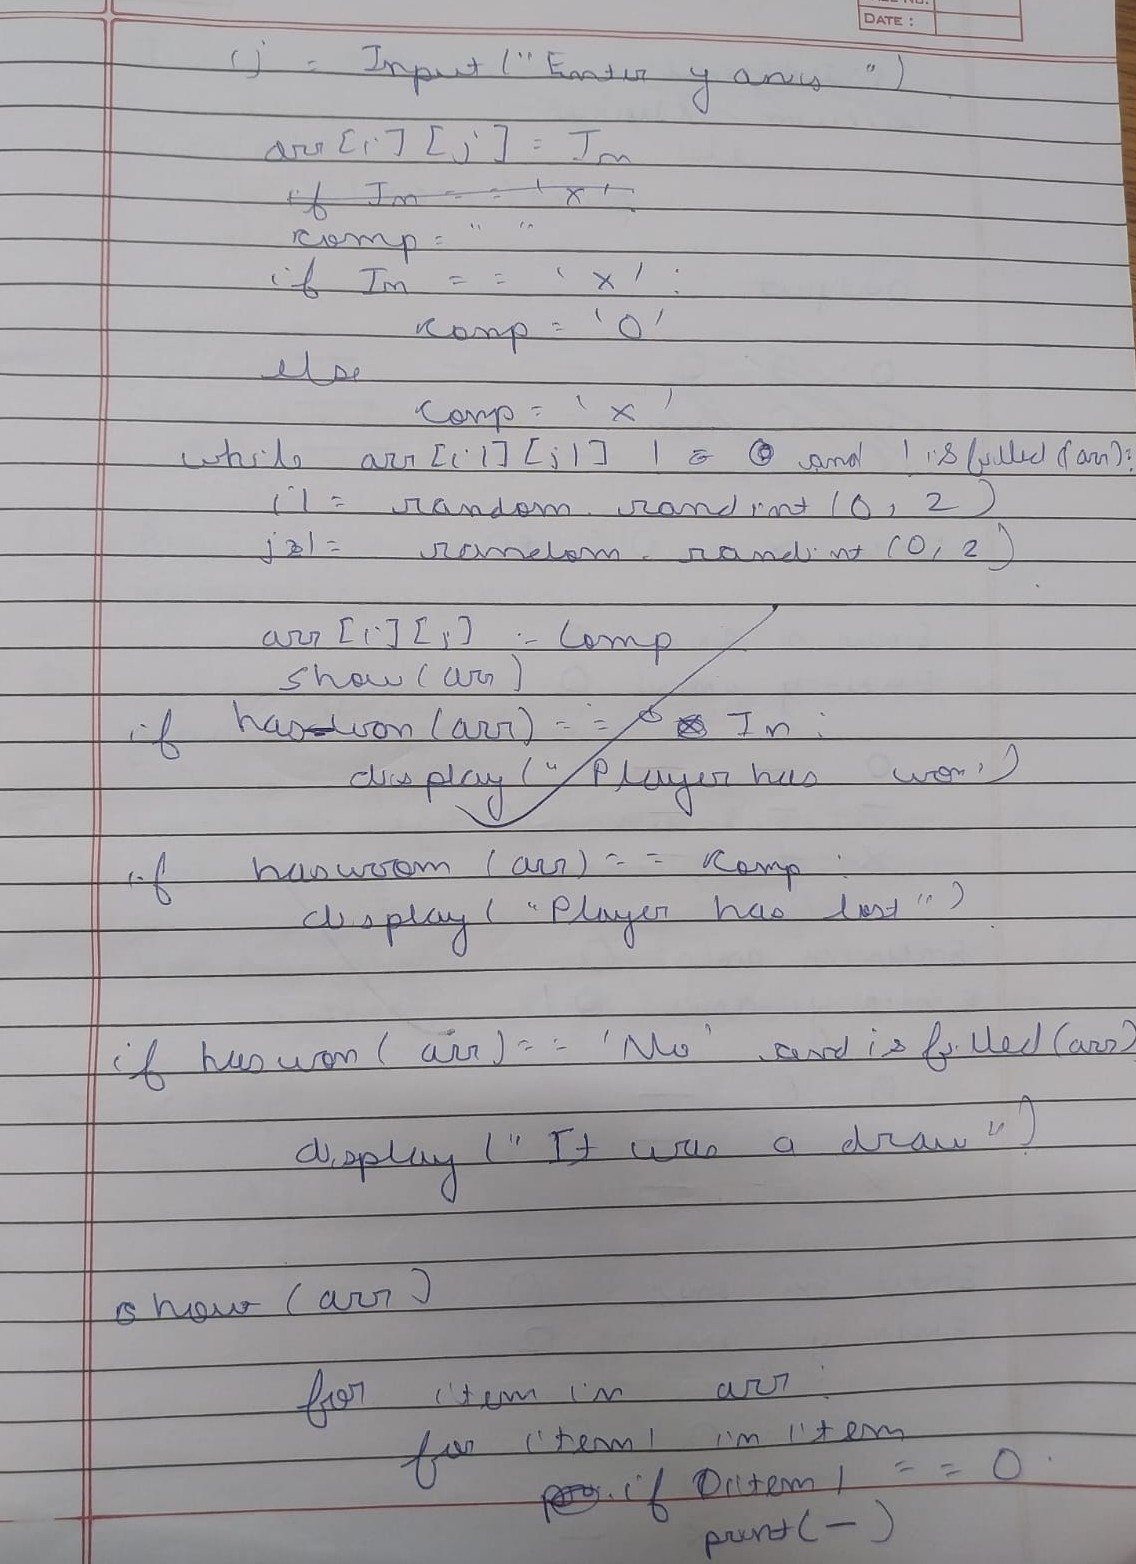 DATE :
j = Input ("Enter y axis ")
arr [i] [j] = In
if In == 'x'
comp = " "
if In == 'x' :
comp = 'O'
else
comp = 'x'
while arr [i1] [j1] != 0 and ! isfilled (arr):
i1 = random. randint (0, 2)
j1 = random. randint (0, 2)
arr [i] [j] = comp
show (arr)
if has-won (arr) == In :
display (" Player has won")
if haswoom (arr) == comp :
display ( "Player has lost ")
if haswon ( arr) == 'No' and is filled (arr)
display (" It was a draw ")
show (arr)
for item in arr :
for item1 in item
if item1 == 0
print (-)